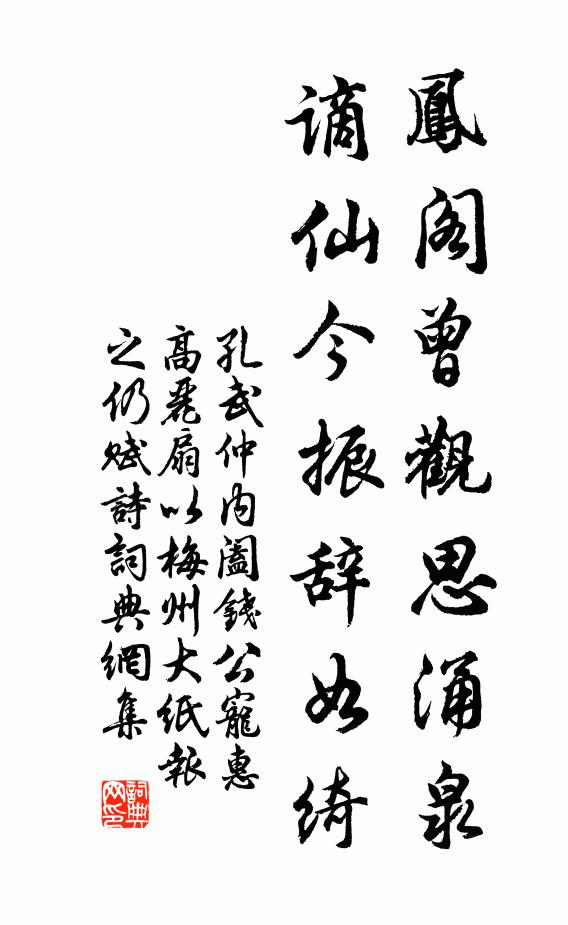 鳳閣曾觀思涌泉
謫仙今振辞如綺
孔武仲内闔錢公寵惠
高麗扇以梅州大紙報
之仍賦詩詞典網集
詞典
网印